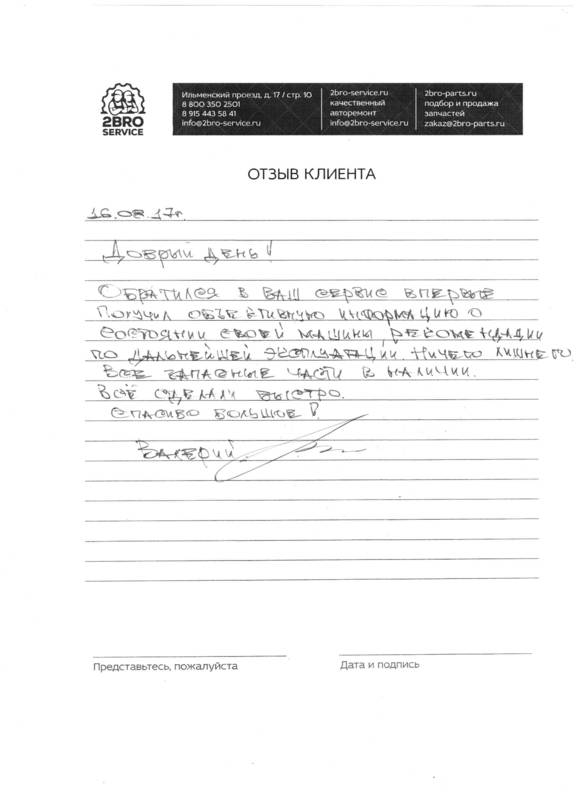 2BRO
SERVICE
Ильменский проезд, д. 17 / стр. 10
8 800 350 2501
8 915 443 58 41
info@2bro-service.ru
2bro-service.ru
качественный
авторемонт
info@2bro-service.ru
2bro-parts.ru
подбор и продажа
запчастей
zakaz@2bro-parts.ru
ОТЗЫВ КЛИЕНТА
16.08.17г.
Добрый день!
Обратился в ваш сервис впервые
Получил объективную информацию о
состоянии своей машины, рекомендации
по дальнейшей эксплуатации. Ничего лишнего
Все запасные части в наличии.
Всё сделали быстро.
Спасибо большое!
Валерий.
Представьтесь, пожалуйста
Дата и подпись